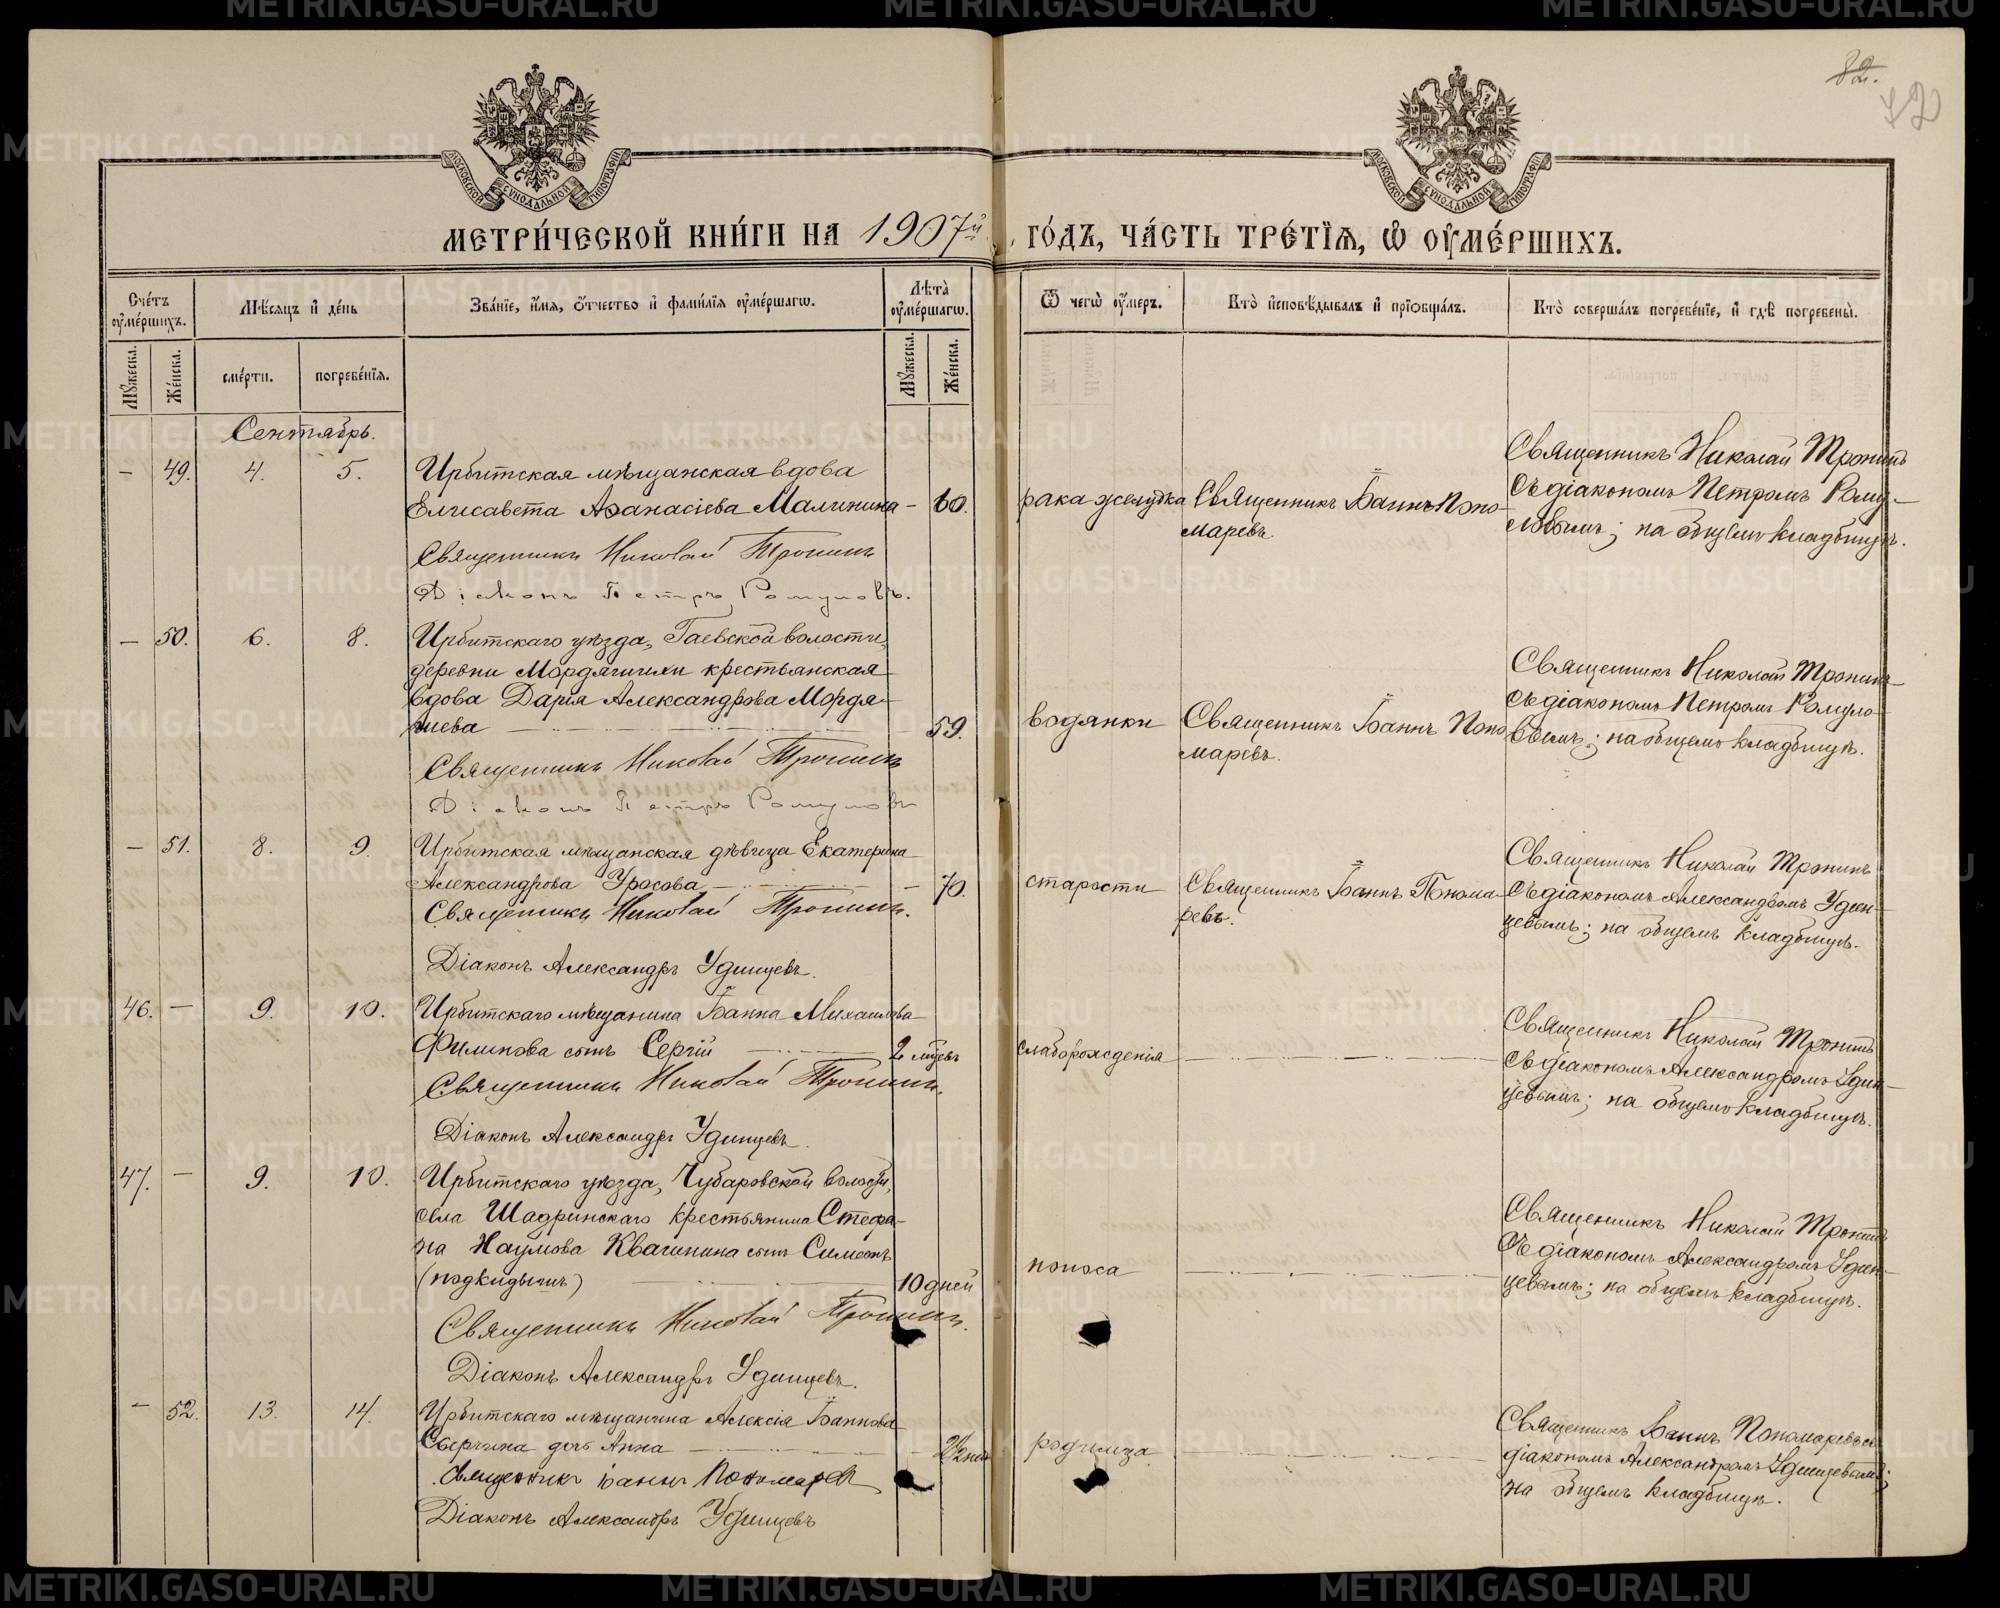 82.
42
МОСКОВСКОЙ СѴНОДАЛЬНОЙ ТИПОГРАФІИ
МОСКОВСКОЙ СѴНОДАЛЬНОЙ ТИПОГРАФІИ
МЕТРИ́ЧЕСКОЙ КНИ́ГИ НА 1907й го́дъ, ча́сть тре́тїѧ, ѡ҆ ᲂу҆ме́ршихъ.
Сче́тъ ᲂу҆ме́ршихъ.
Мѣ́сѧцъ и҆ де́нь
Зва́нїе, и҆́мѧ, ѻ҆́тчество и҆ фами́лїѧ ᲂу҆ме́ршагѡ.
Лѣ̑та̀ ᲂу҆ме́ршагѡ.
Ѿ чегѡ̀ ᲂу҆́меръ.
Кто̀ и҆сповѣ́дывалъ и҆ прїѡбща́лъ.
Кто̀ соверша́лъ погребе́нїе, и҆ гдѣ̀ погребены̀.
Мꙋ́жеска.
Же́нска.
сме́рти.
погребе́нїѧ.
Мꙋ́жеска.
Же́нска.
Сентябрь.
— 49. 4. 5. Ирбитская мѣщанская вдова
Елисавета Аѳанасіева Малинина — 60.
Священникъ Николай Тронинъ
Діаконъ Петръ Ромуловъ.
рака желудка
Священникъ Іоаннъ Поно-
маревъ.
Священникъ Николай Тронинъ
съ діакономъ Петромъ Рому-
ловымъ; на общемъ кладбищѣ.
— 50. 6. 8. Ирбитскаго уѣзда, Гаевской волости,
деревни Мордяшихи крестьянская
вдова Дарія Александрова Мордя-
шева — 59.
Священникъ Николай Тронинъ
Діаконъ Петръ Ромуловъ
водянки
Священникъ Іоаннъ Поно-
маревъ.
Священникъ Николай Тронинъ
съ діакономъ Петромъ Ромуло-
вымъ; на общемъ кладбищѣ.
— 51. 8. 9. Ирбитская мѣщанская дѣвица Екатерина
Александрова Уросова — 70.
Священникъ Николай Тронинъ.
Діаконъ Александръ Удинцевъ.
старости
Священникъ Іоаннъ Понома-
ревъ.
Священникъ Николай Тронинъ
съ діакономъ Александромъ Удин-
цевымъ; на общемъ кладбищѣ.
46. — 9. 10. Ирбитскаго мѣщанина Іоанна Михаилова
Филинова сынъ Сергій — 2 мѣсъ
Священникъ Николай Тронинъ.
Діаконъ Александръ Удинцевъ.
слаборожденія
Священникъ Николай Тронинъ
съ діакономъ Александромъ Удин-
цевымъ; на общемъ кладбищѣ.
47. — 9. 10. Ирбитскаго уѣзда, Чубаровской волости,
села Шадринскаго крестьянина Стефа-
на Наумова Квашнина сынъ Симеонъ
(подкидышъ) — 10 дней
Священникъ Николай Тронинъ.
Діаконъ Александръ Удинцевъ.
поноса
Священникъ Николай Тронинъ
съ діакономъ Александромъ Удин-
цевымъ; на общемъ кладбищѣ.
— 52. 13. 14. Ирбитскаго мѣщанина Алексія Іоаннова
Сверчина дочь Анна —
Священникъ Іоаннъ Пономаревъ
Діаконъ Александръ Удинцевъ
родимца
Священникъ Іоаннъ Пономаревъ съ
діакономъ Александромъ Удинцевымъ;
на общемъ кладбищѣ.
METRIKI.GASO-URAL.RU